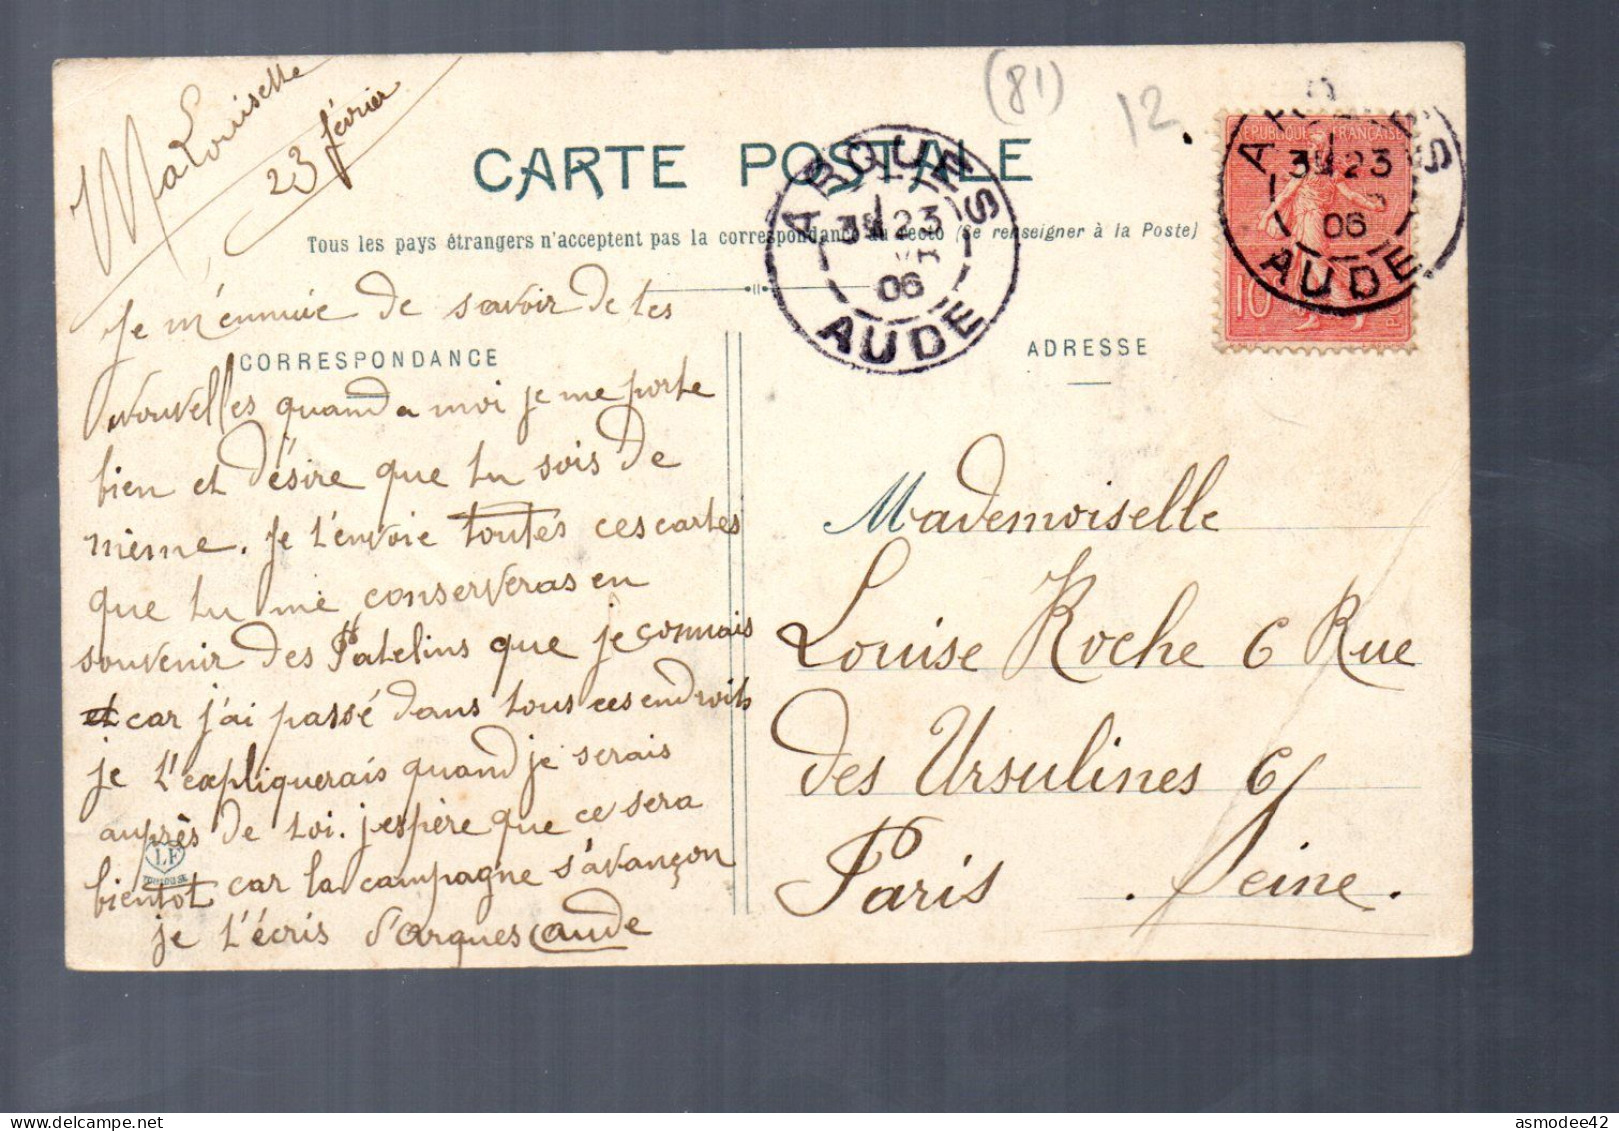 (81)
12
Ma Louisette
23 février
CARTE POSTALE
Tous les pays étrangers n'acceptent pas la correspondance au recto (Se renseigner à la Poste)
ARQUES
3E 23
06
AUDE
REPUBLIQUE FRANÇAISE
10
ARQUES
3E 23
06
AUDE
Je m'ennuie de savoir de tes
CORRESPONDANCE
nouvelles quand a moi je me porte
bien et désire que tu sois de
même. Je t'envoie toutes ces cartes
que tu me conserveras en
souvenir des Patelins que je connais
et car j'ai passé dans tous ces endroits
je t'expliquerais quand je serais
auprès de toi. j'espère que ce sera
bientot car la campagne s'avançon
je t'écris d'Arques Aude
LF
TOULOUSE
ADRESSE
Mademoiselle
Louise Roche 6 Rue
des Ursulines 6
Paris . Seine.
asmodee42